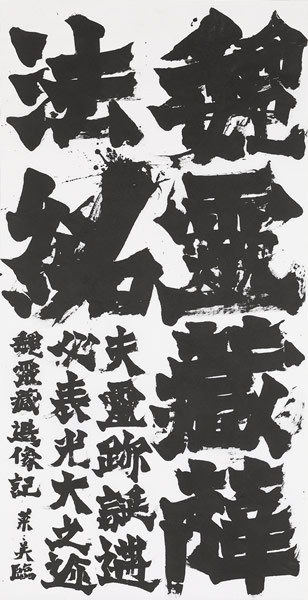 魏靈藏薛
法紹
夫靈跡誕遘
必表光大之迹
魏靈藏造像記 臨